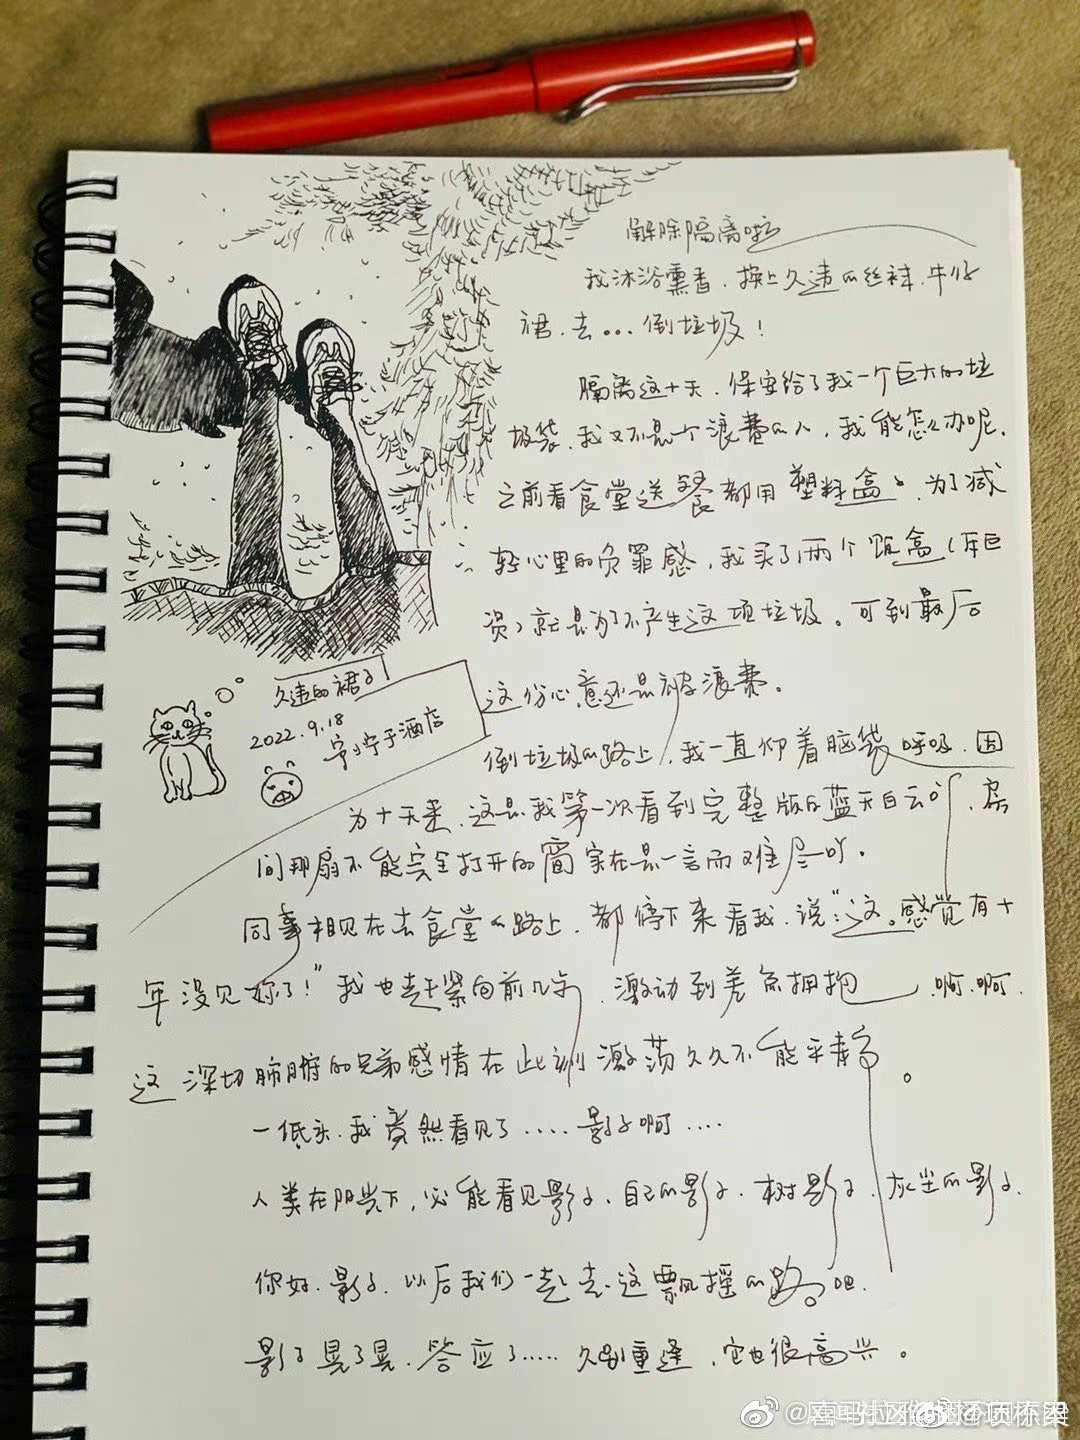 解除隔离啦
我沐浴熏香、换上久违的丝袜、牛仔
裙、去...倒垃圾！
隔离这十天、保安给了我一个巨大的垃
圾袋、我又不是个浪费的人，我能怎么办呢、
之前看食堂送餐都用塑料盒、为了减
轻心里的负罪感，我买了两个饭盒（斥巨
资）就是为了不产生这项垃圾。可到最后
这份心意还是被浪费。
久违的裙子
2022.9.18
宁宁于酒店
倒垃圾的路上，我一直仰着脑袋呼吸、因
为十天来、这是我第一次看到完整版的蓝天白云吖、房
间那扇不能完全打开的窗实在是一言而难尽吖。
同事相见在去食堂的路上、都停下来看我、说“这。感觉有十
年没见妳了！”我也赶紧向前几步、激动到差点拥抱 啊、啊、
这深切肺腑的兄弟感情在此刻激荡久久不能平静。
一低头、我竟然看见了.....影子啊....
人类在阳光下，必能看见影子、自己的影子、树影子、灰尘的影子、
你好、影子、以后我们一起去这飘摇的路。吧、
影子晃了晃、答应了.....久别重逢、它也很高兴。